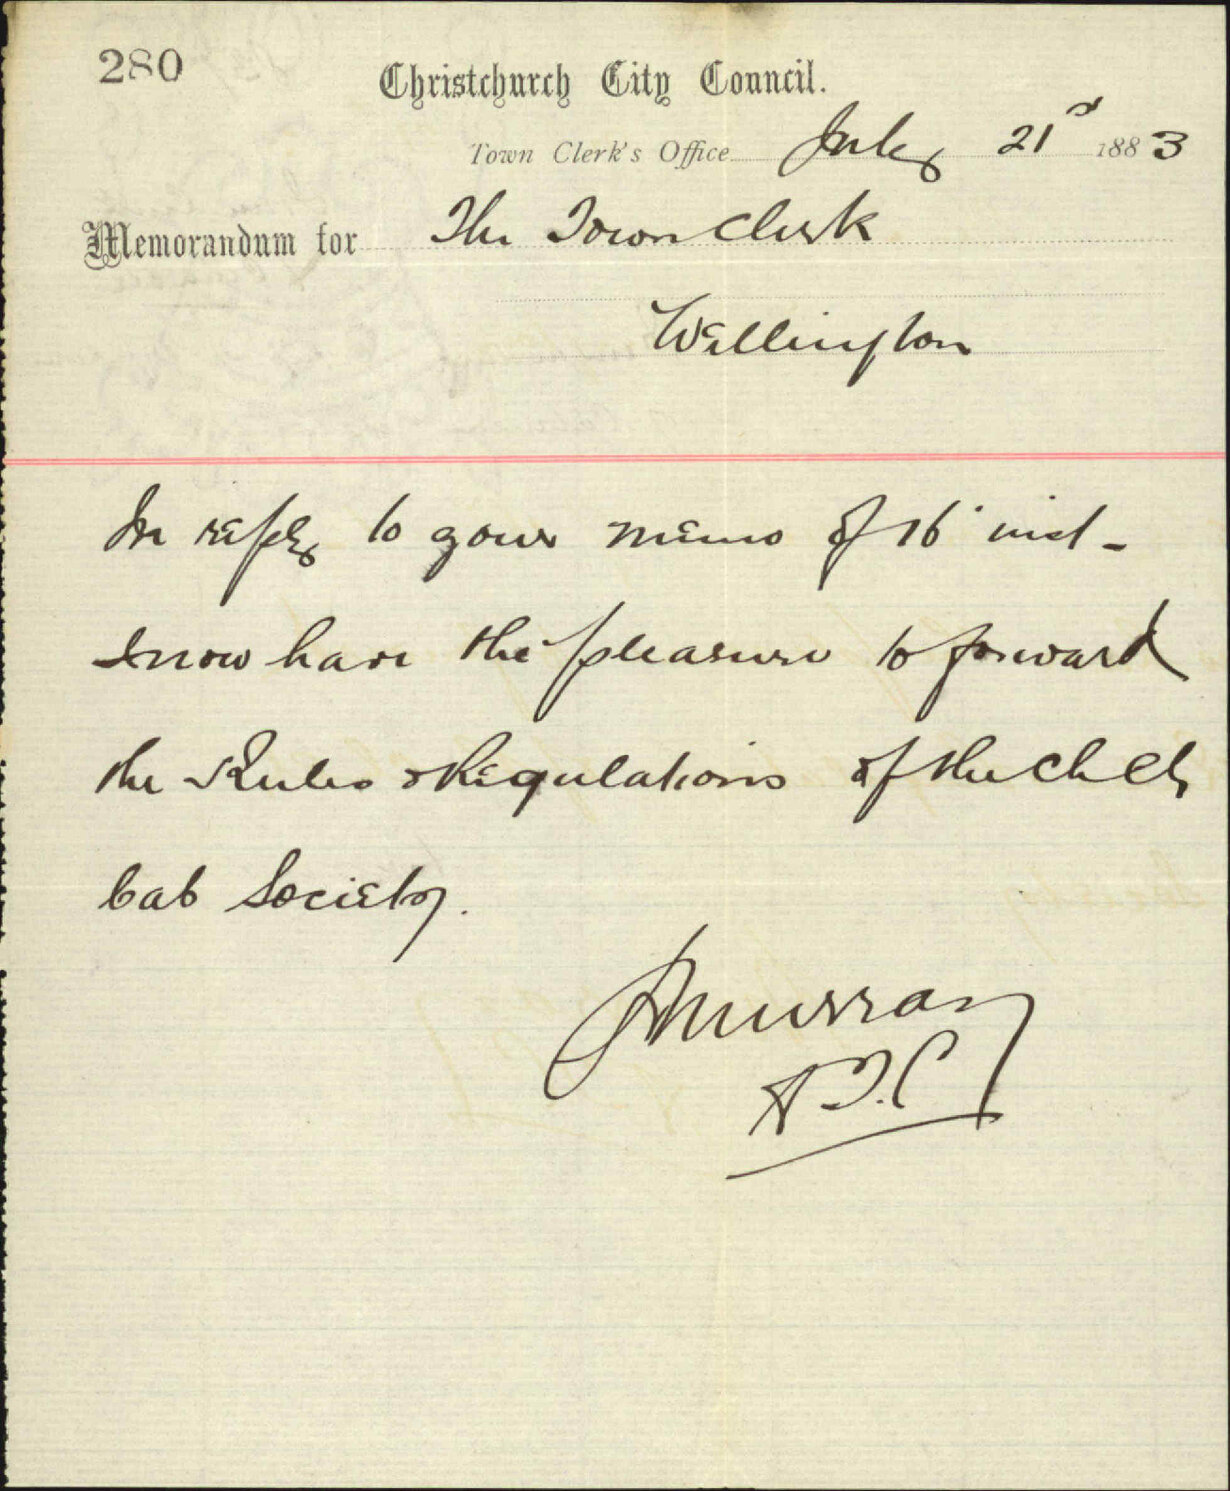 280
Christchurch City Council.
Town Clerk's Office July 21st 1883
Memorandum for The Town Clerk
Wellington
In reply to your memo of 16 inst -
I now have the pleasure to forward
the Rules & Regulations of the Ch Ch
Cab Society.
Murray
A T.C